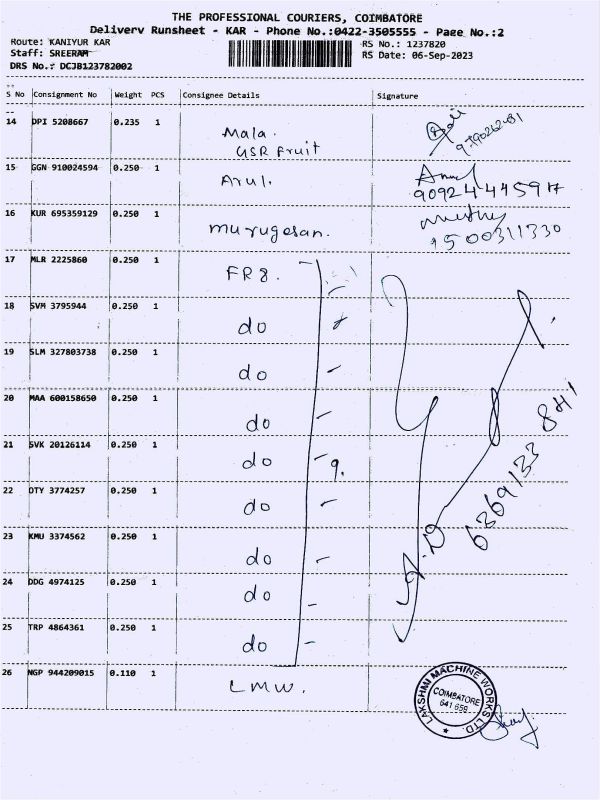 THE PROFESSIONAL COURIERS, COIMBATORE
Delivery Runsheet - KAR - Phone No.:0422-3505555 - Page No.:2
Route: KANIYUR KAR
RS No.: 1237820
Staff: SREERAM
RS Date: 06-Sep-2023
DRS No.: DCJB123782002
S No Consignment No Weight PCS Consignee Details Signature
14 DPI 5208667 0.235 1
Mala.
GSR Fruit
15 GGN 910024594 0.250 1
Arul.
9092444597
16 KUR 695359129 0.250 1
Murugesan.
17 MLR 2225860 0.250 1
FR8.
18 SVM 3795944 0.250 1
do
19 SLM 327803738 0.250 1
do
20 MAA 600158650 0.250 1
do
21 SVK 20126114 0.250 1
do
9.
22 OTY 3774257 0.250 1
do
23 KMU 3374562 0.250 1
do
24 DDG 4974125 0.250 1
do
25 TRP 4864361 0.250 1
do
6369133841
26 NGP 944209015 0.110 1
LMW.
LAKSHMI MACHINE WORKS LTD.
COIMBATORE
641 658